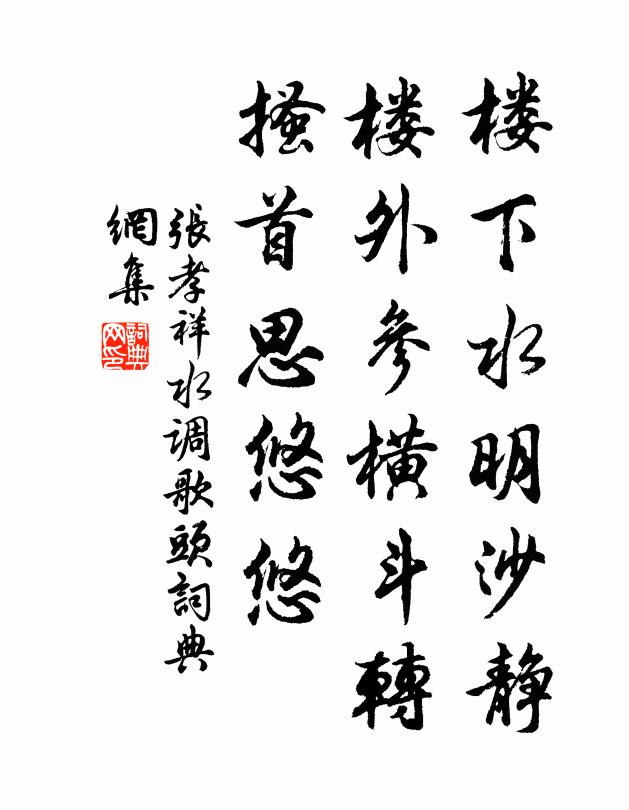 楼下水明沙静
楼外参橫斗轉
搔首思悠悠
張孝祥水调歌頭詞典
網集
詞典
网印